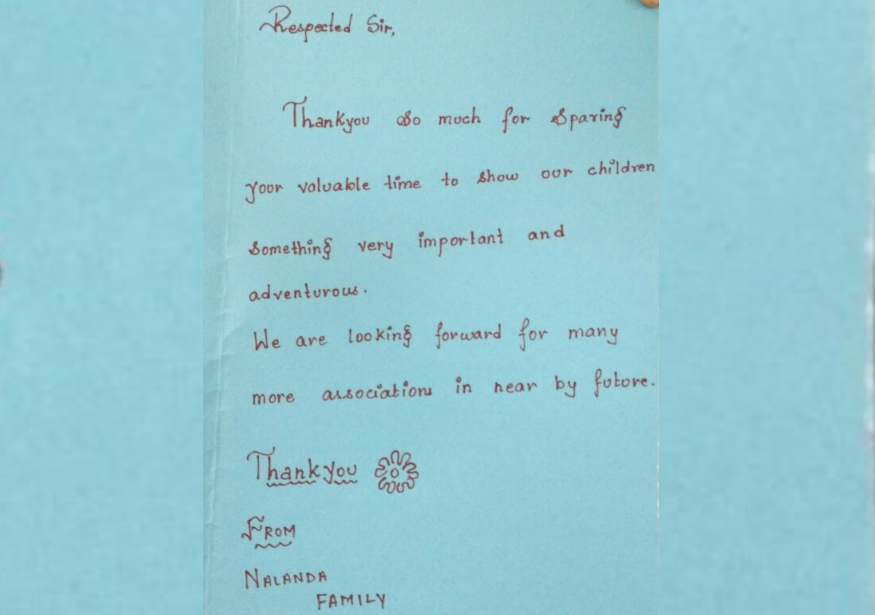 Respected Sir,
Thankyou so much for sparing
your valuable time to show our children
something very important and
adventurous.
We are looking forward for many
more associations in near by future.
Thank you
FROM
NALANDA
FAMILY